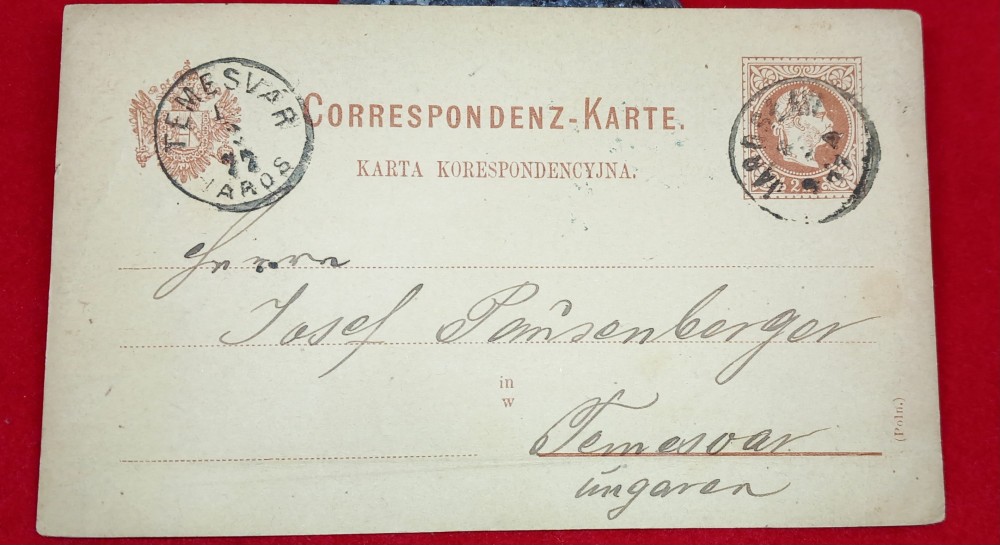 TEMESVÁR
77
VÁROS
CORRESPONDENZ-KARTE.
KARTA KORESPONDENCYJNA.
2
Herrn
Josef Pausenberger
in
w
Temesvar
ungaren
(Poln.)